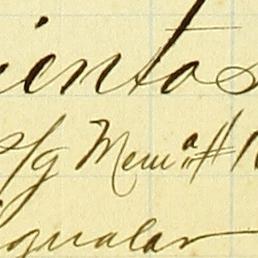 ientos
s/g Mem.ª # 1
gualar